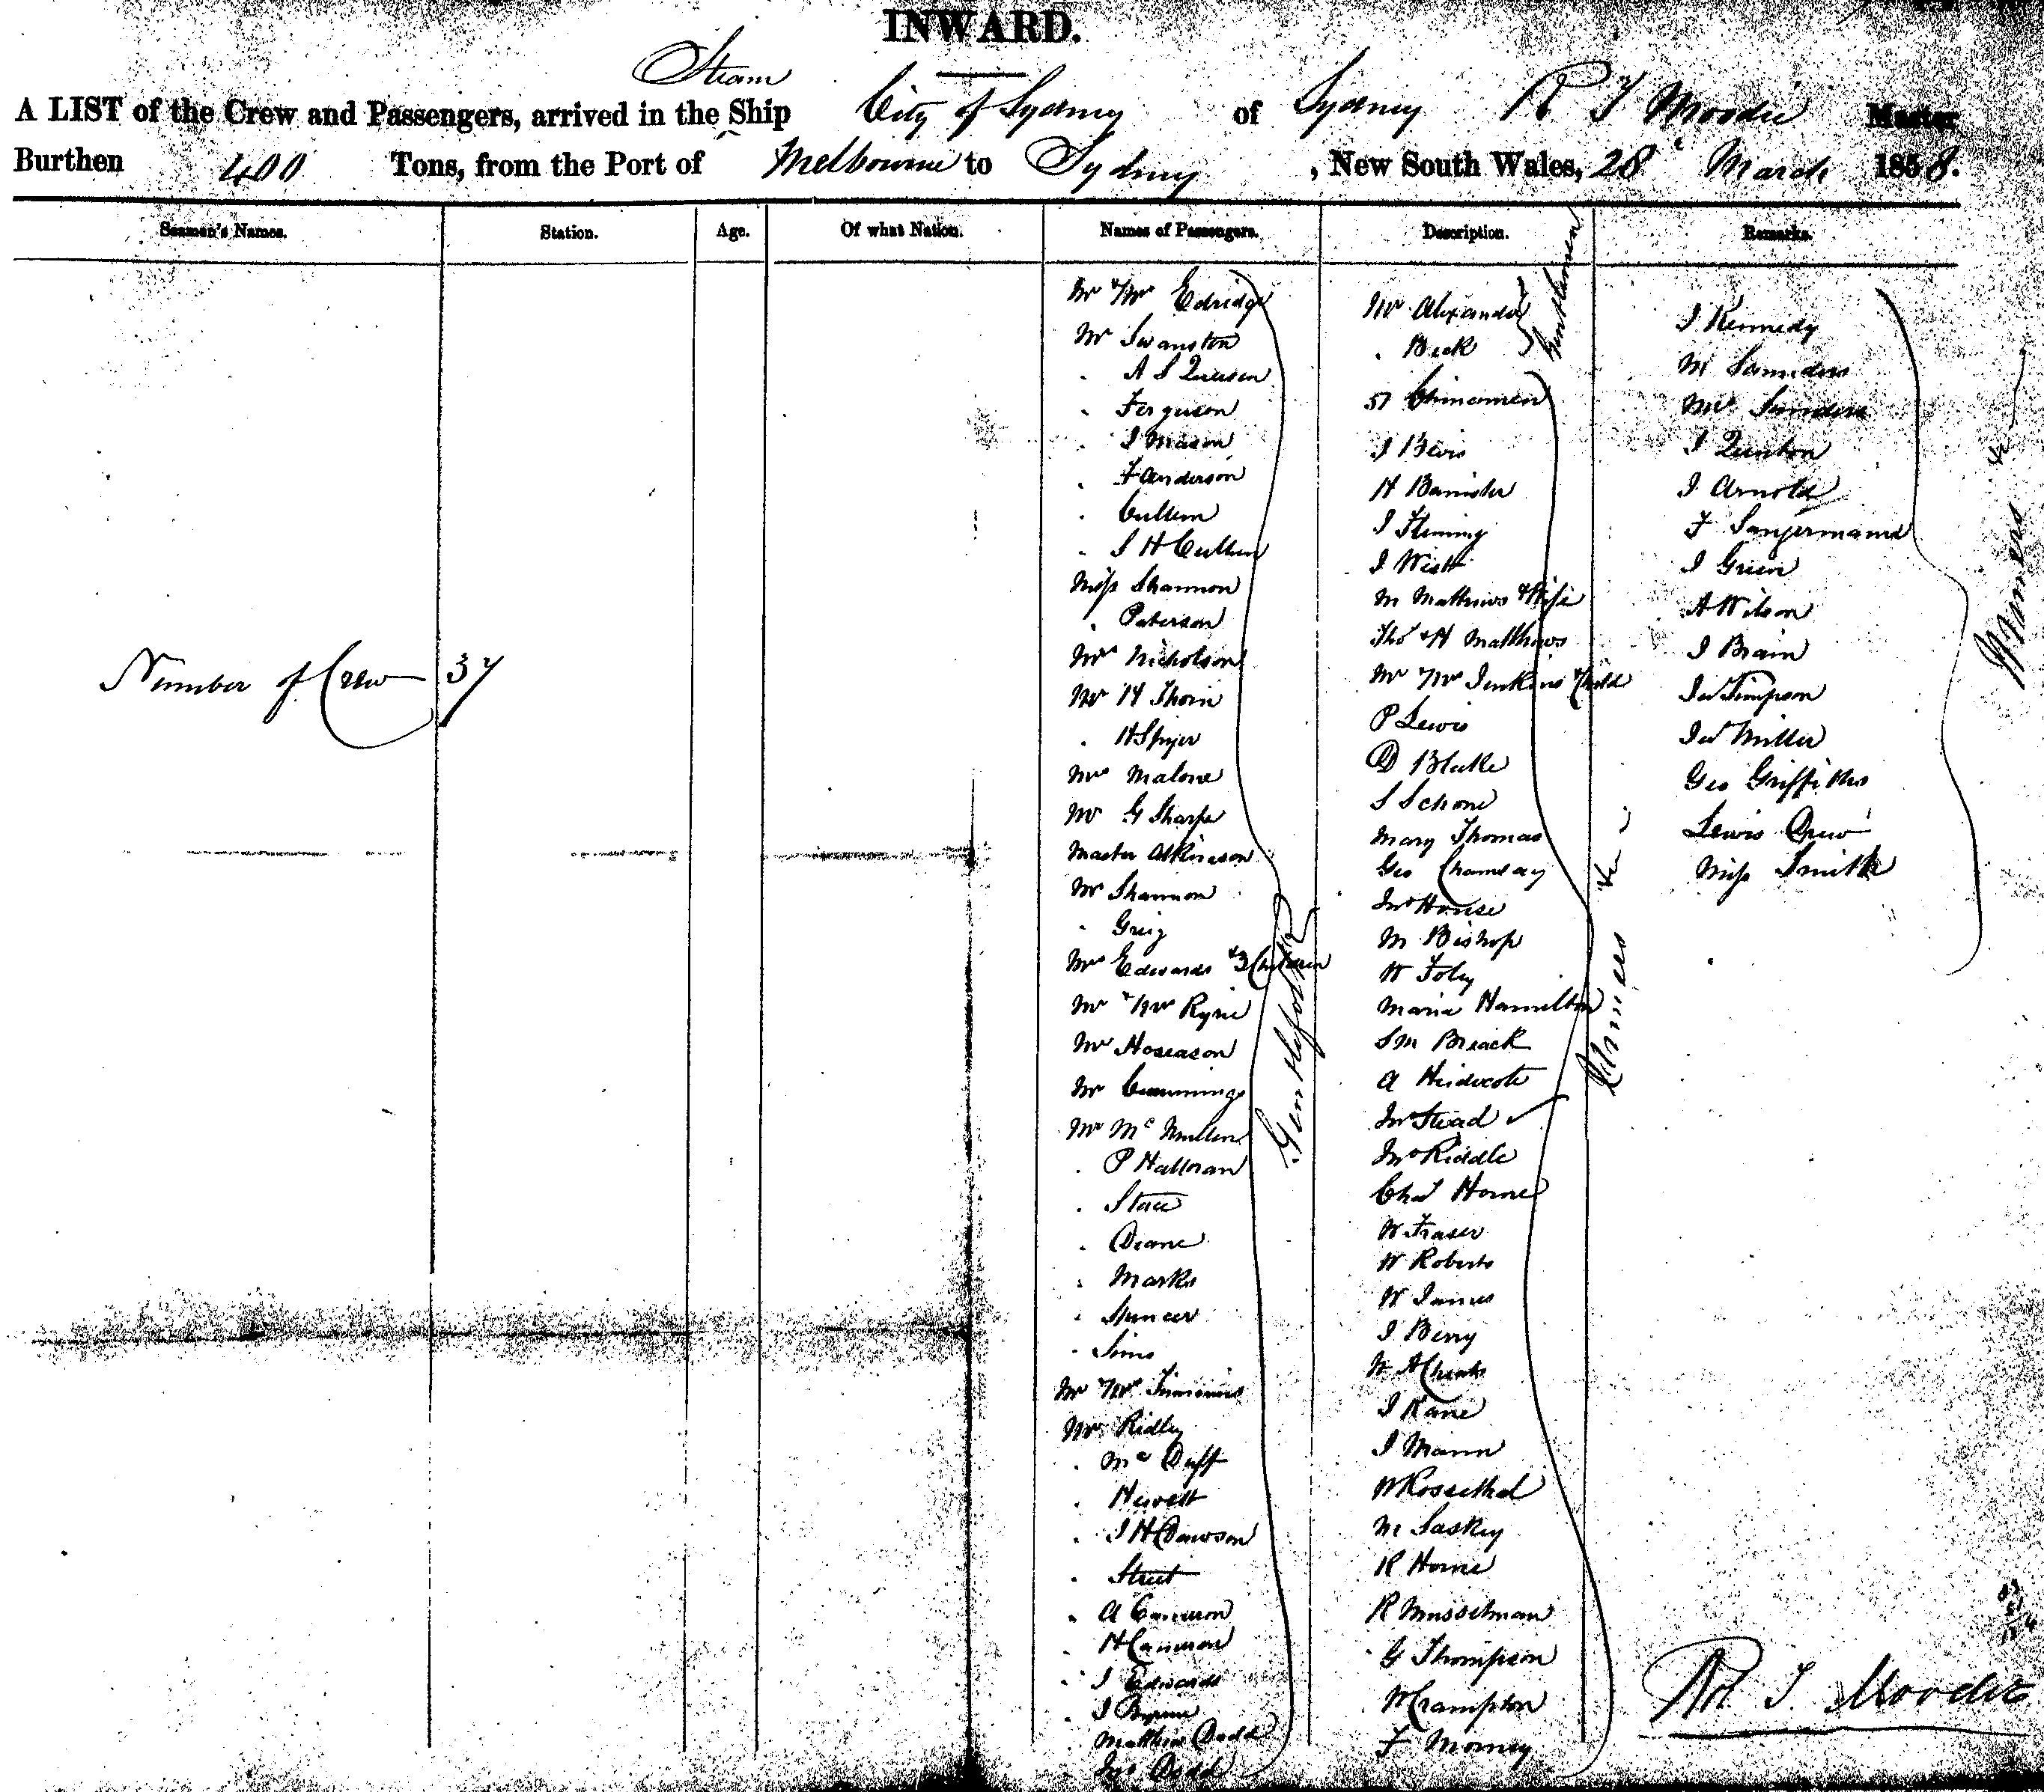 INWARD.
Steam
A LIST of the Crew and Passengers, arrived in the Ship City of Sydney of Sydney R T Moodie Master
Burthen 400 Tons, from the Port of Melbourne to Sydney , New South Wales, 28 March 1858.
Seamen's Names. Station. Age. Of what Nation. Names of Passengers. Description. Remarks.
Number of Crew 37
Mr & Mrs Edridge
Mr Swanston
. A S
. Ferguson
. J Mason
. F Anderson
. Cullen
. J H Cullen
Miss Shannon
. Paterson
Mrs Nicholson
Mr H Thorn
. H Spyer
Mrs Malone
Mr G Sharpe
Master Atkinson
Mr Shannon
. Greig
Mrs Edwards & 3 Children
Mr & Mrs Ryrie
Mr Hoseason
Mr Cummings
Mr McMullen
. P Halloran
. Stace
. Deane
. Marks
. Spencer
. Sims
Mr & Mrs Timmins
Mr Ridley
. McDuff
. Hewett
. J H Dawson
. Street
. A Cameron
. H Cameron
. J Edwards
. J Byrne
Matthew Dodd
Jno Dodd
Gentlefolk
Mr Alexander
. Beck
Gentlemen
57 Chinamen
J Bevis
H Banister
J Fleming
J West
M Mathews & Wife
Thos & H Matthews
Mr & Mrs Jenkins & Child
P Lewis
D Blake
S Schone
Mary Thomas
Geo
Jno House
M Bishop
W Foley
Maria Hamilton
S M Breack
A Heidecote
Jno Stead
Jno Riddle
Chas Horne
W Fraser
W Roberts
W James
J Berry
W A Cheats
J Kane
J Mann
W Rossethal
M Laskey
R Horne
R Musselman
G Thompson
W Crampton
F Morney
Miners &c
J Kennedy
M Saunders
Mrs Sanders
J Quinton
J Arnold
F Sangermann
J Green
A Wilson
J Brain
Jas Simpson
Jas Miller
Geo Griffiths
Lewis Drew
Miss Smith
Miners &c
Rt T Moodie